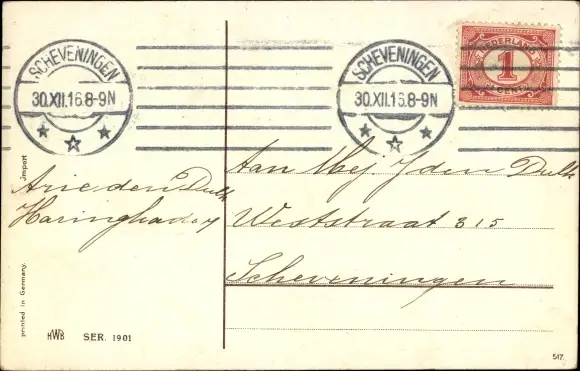 SCHEVENINGEN
30.XII.16.8-9N
SCHEVENINGEN
30.XII.16.8-9N
NEDERLAND
1
CENT
Import
Arie den Dulk
Haringkade
Aan Mej. J den Dulk
Weststraat 315
Scheveningen
printed in Germany.
HWB SER. 1901
517.